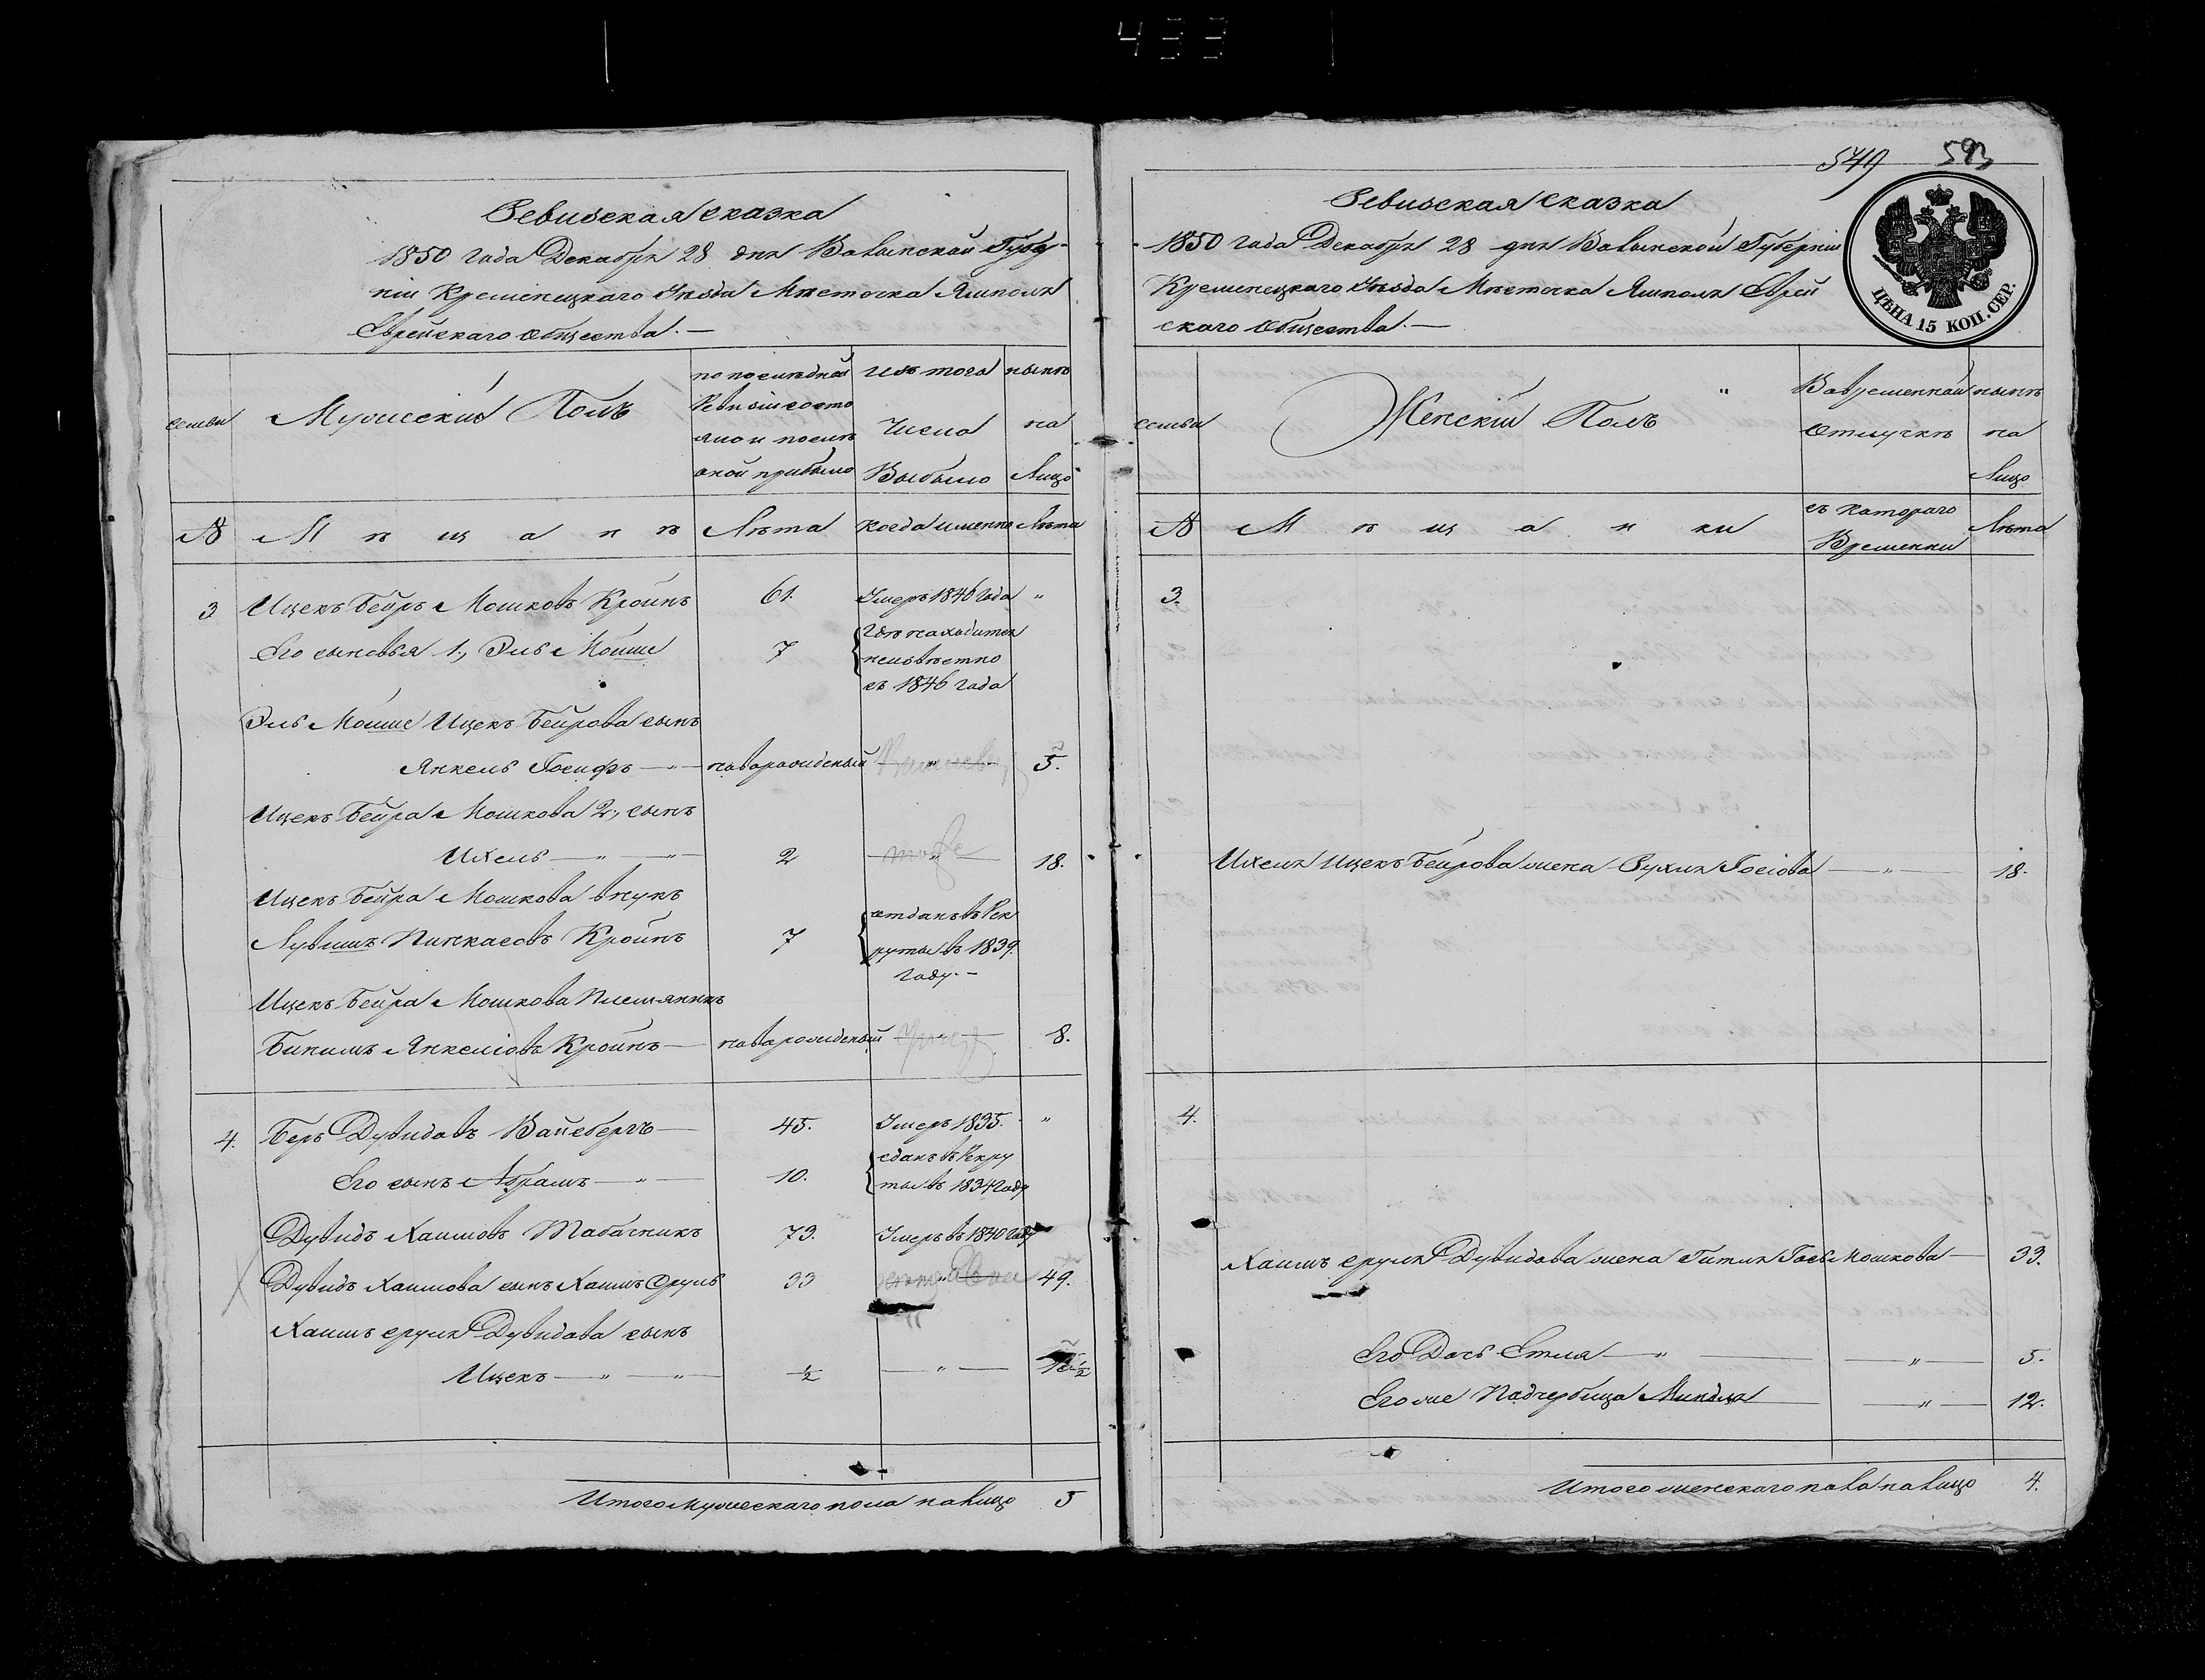 433
Ревизская сказка
1850 года Декабря 28 дня Волынской Губер-
ніи Кременецкаго Уѣзда Мѣстечка Ямполя
Еврейскаго общества.—
семьи
Мужескій Полъ
по послѣдней
Ревизіи состо
яло и послѣ
оной прибыло
Изъ того
Числа
Выбыло
нынѣ
на
Лицо
№
М ѣ щ а н ѣ
Лѣта
когда именно
Лѣта
3 Ицекъ Бейръ Мошковъ Кройнъ 61. Умеръ 1846 года "
Его сыновья 1., Эль Мойше 7 Гдѣ находится
неизвѣстно
съ 1846 года
Эль Мойше Ицекъ Бейрова сынъ
Янкель Іосифъ — " — новорожденый " 5.
Ицекъ Бейра Мошкова 2., сынъ
Ихель — " — " 2 — " — 18.
Ицекъ Бейра Мошкова внукъ
Лувишъ Пинкасовъ Кройнъ 7 отданъ въ Рек
руты въ 1839.
году.—
Ицекъ Бейра Мошкова Племянникъ
Янкеліовъ Кройнъ — новорожденый — " — 8.
4. Беръ Дувидовъ Вайсбергъ — 45. Умеръ 1835. "
Его сынъ Абрамъ — " — 10. сданъ въ Рекру
ты въ 1834 году
Дувидъ Хаимовъ Табачникъ 73. Умеръ въ 1840 году
Дувидъ Хаимова сынъ Хаимъ Сруль 33 " 49.
Хаимъ Сруля Дувидова сынъ
Ицекъ — " — " — ½ — " —
Итого мужескаго пола на лицо 5
549 593
Ревизская сказка
1850 года Декабря 28 дня Волынской Губерніи
Кременецкаго Уѣзда Мѣстечка Ямполя Еврей
скаго общества.—
ЦѢНА 15 КОП. СЕР.
семьи
Женскій Полъ "
Во временной
отлучкѣ
нынѣ
на
Лицо
№
М ѣ щ а н ки
съ котораго
Времени
Лѣта
3.
Ихеля Ицекъ Бейрова жена Рухля Іосіова — " — 18.
4.
Хаимъ Сруля Дувидова жена Гитля Іось Мошкова — 33.
Его Дочь Етля — " — — " — 5.
Его же Падчерица Миндля — " — 12.
Итого женскаго пола на лицо 4.